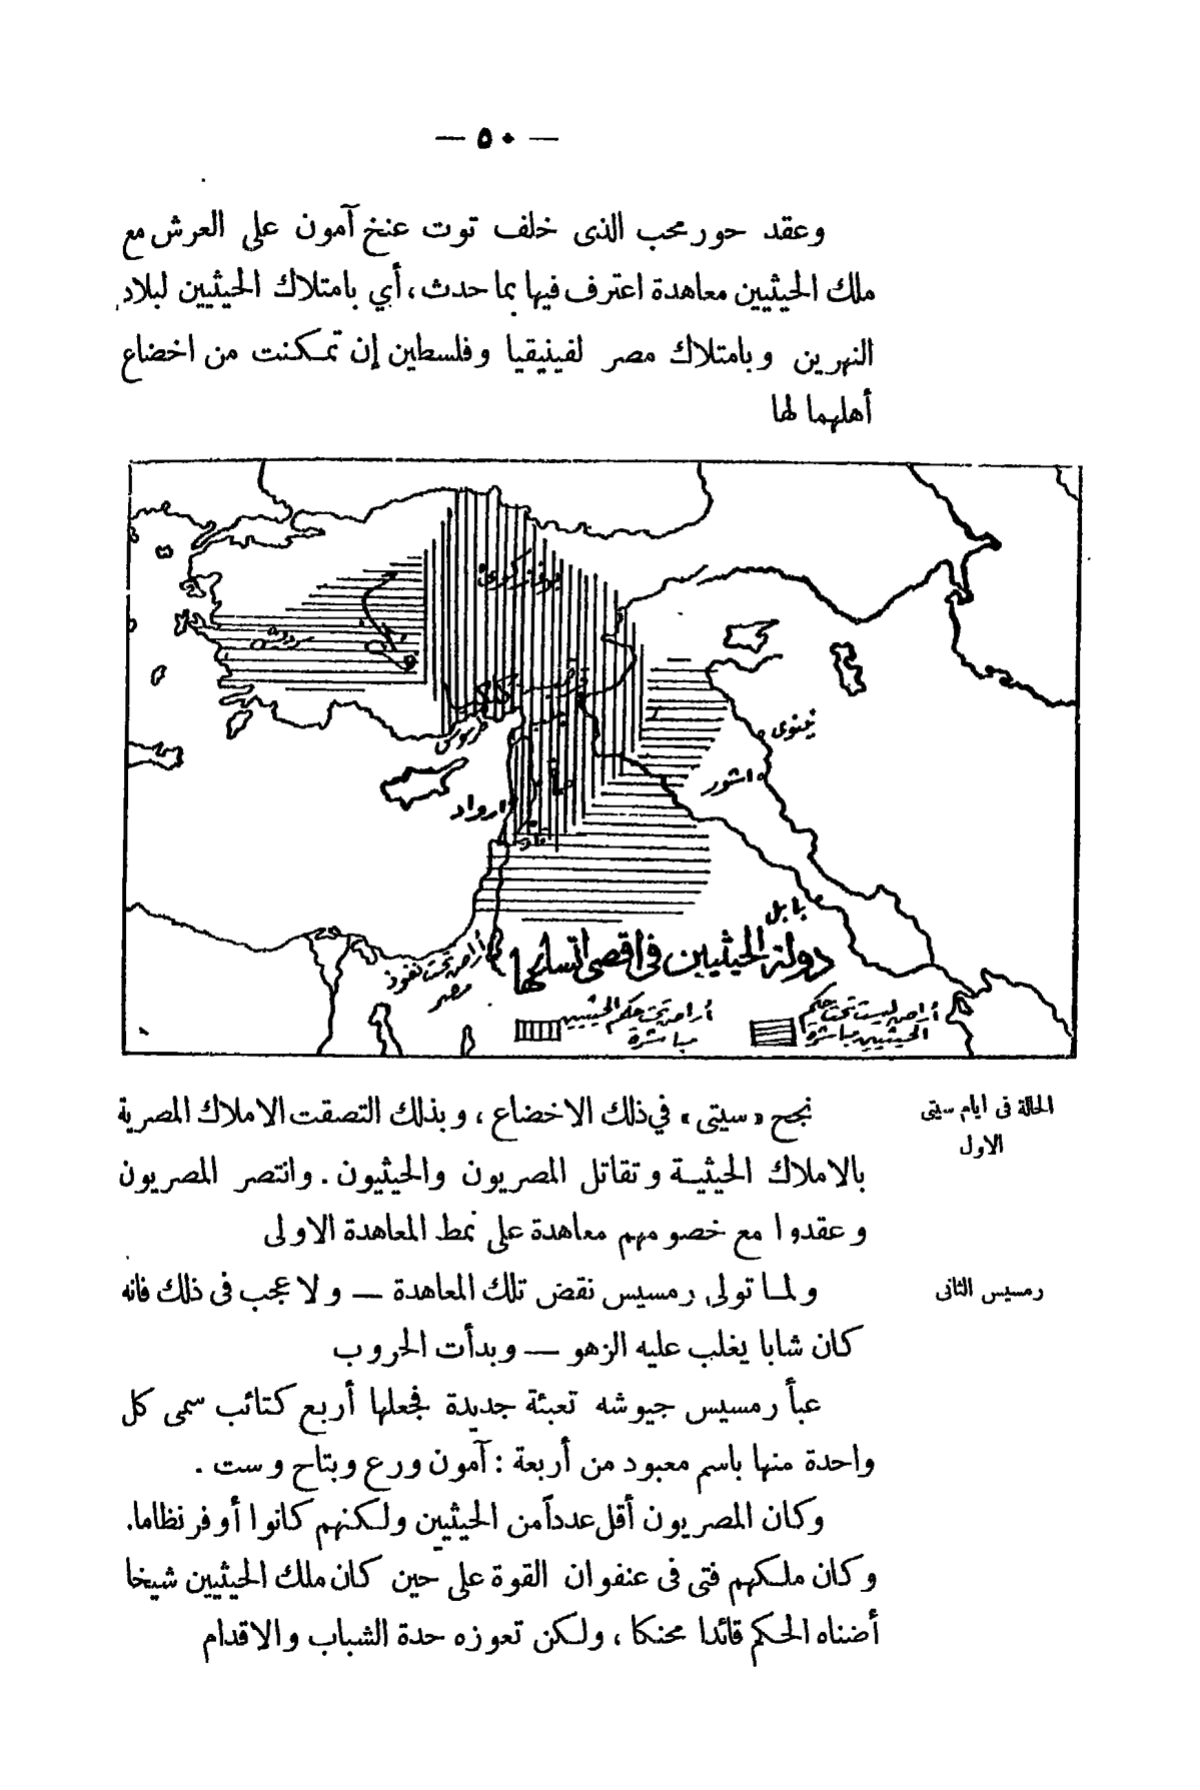 — ٥٠ —
وعقد حور محب الذى خلف توت عنخ آمون على العرش مع
ملك الحيثيين معاهدة اعترف فيها بما حدث، أي بامتلاك الحيثيين لبلاد
النهرين وبامتلاك مصر لفينيقيا وفلسطين إن تمكنت من اخضاع
أهلهما لها
سردوش
نينوى
اشور
طرسوس
ارواد
بابل
دولة الحيثيين فى اقصى اتساعها
أراض تحت نفوذ
مصر
أراض تحت حكم الحيثيين
مباشرة
أراض ليست تحت حكم
الحيثيين مباشرة
الحالة فى ايام سيتى
الاول
نجح «سيتى» في ذلك الاخضاع، وبذلك التصقت الاملاك المصرية
بالاملاك الحيثية وتقاتل المصريون والحيثيون. وانتصر المصريون
وعقدوا مع خصومهم معاهدة على نمط المعاهدة الاولى
رمسيس الثانى
ولما تولى رمسيس نقض تلك المعاهدة — ولا عجب فى ذلك فانه
كان شابا يغلب عليه الزهو — وبدأت الحروب
عبأ رمسيس جيوشه تعبئة جديدة فجعلها أربع كتائب سمى كل
واحدة منها باسم معبود من أربعة: آمون ورع وبتاح وست.
وكان المصريون أقل عدداً من الحيثيين ولكنهم كانوا أوفر نظاما.
وكان ملكهم فتى فى عنفوان القوة على حين كان ملك الحيثيين شيخا
أضناه الحكم قائدا محنكا، ولكن تعوزه حدة الشباب والاقدام